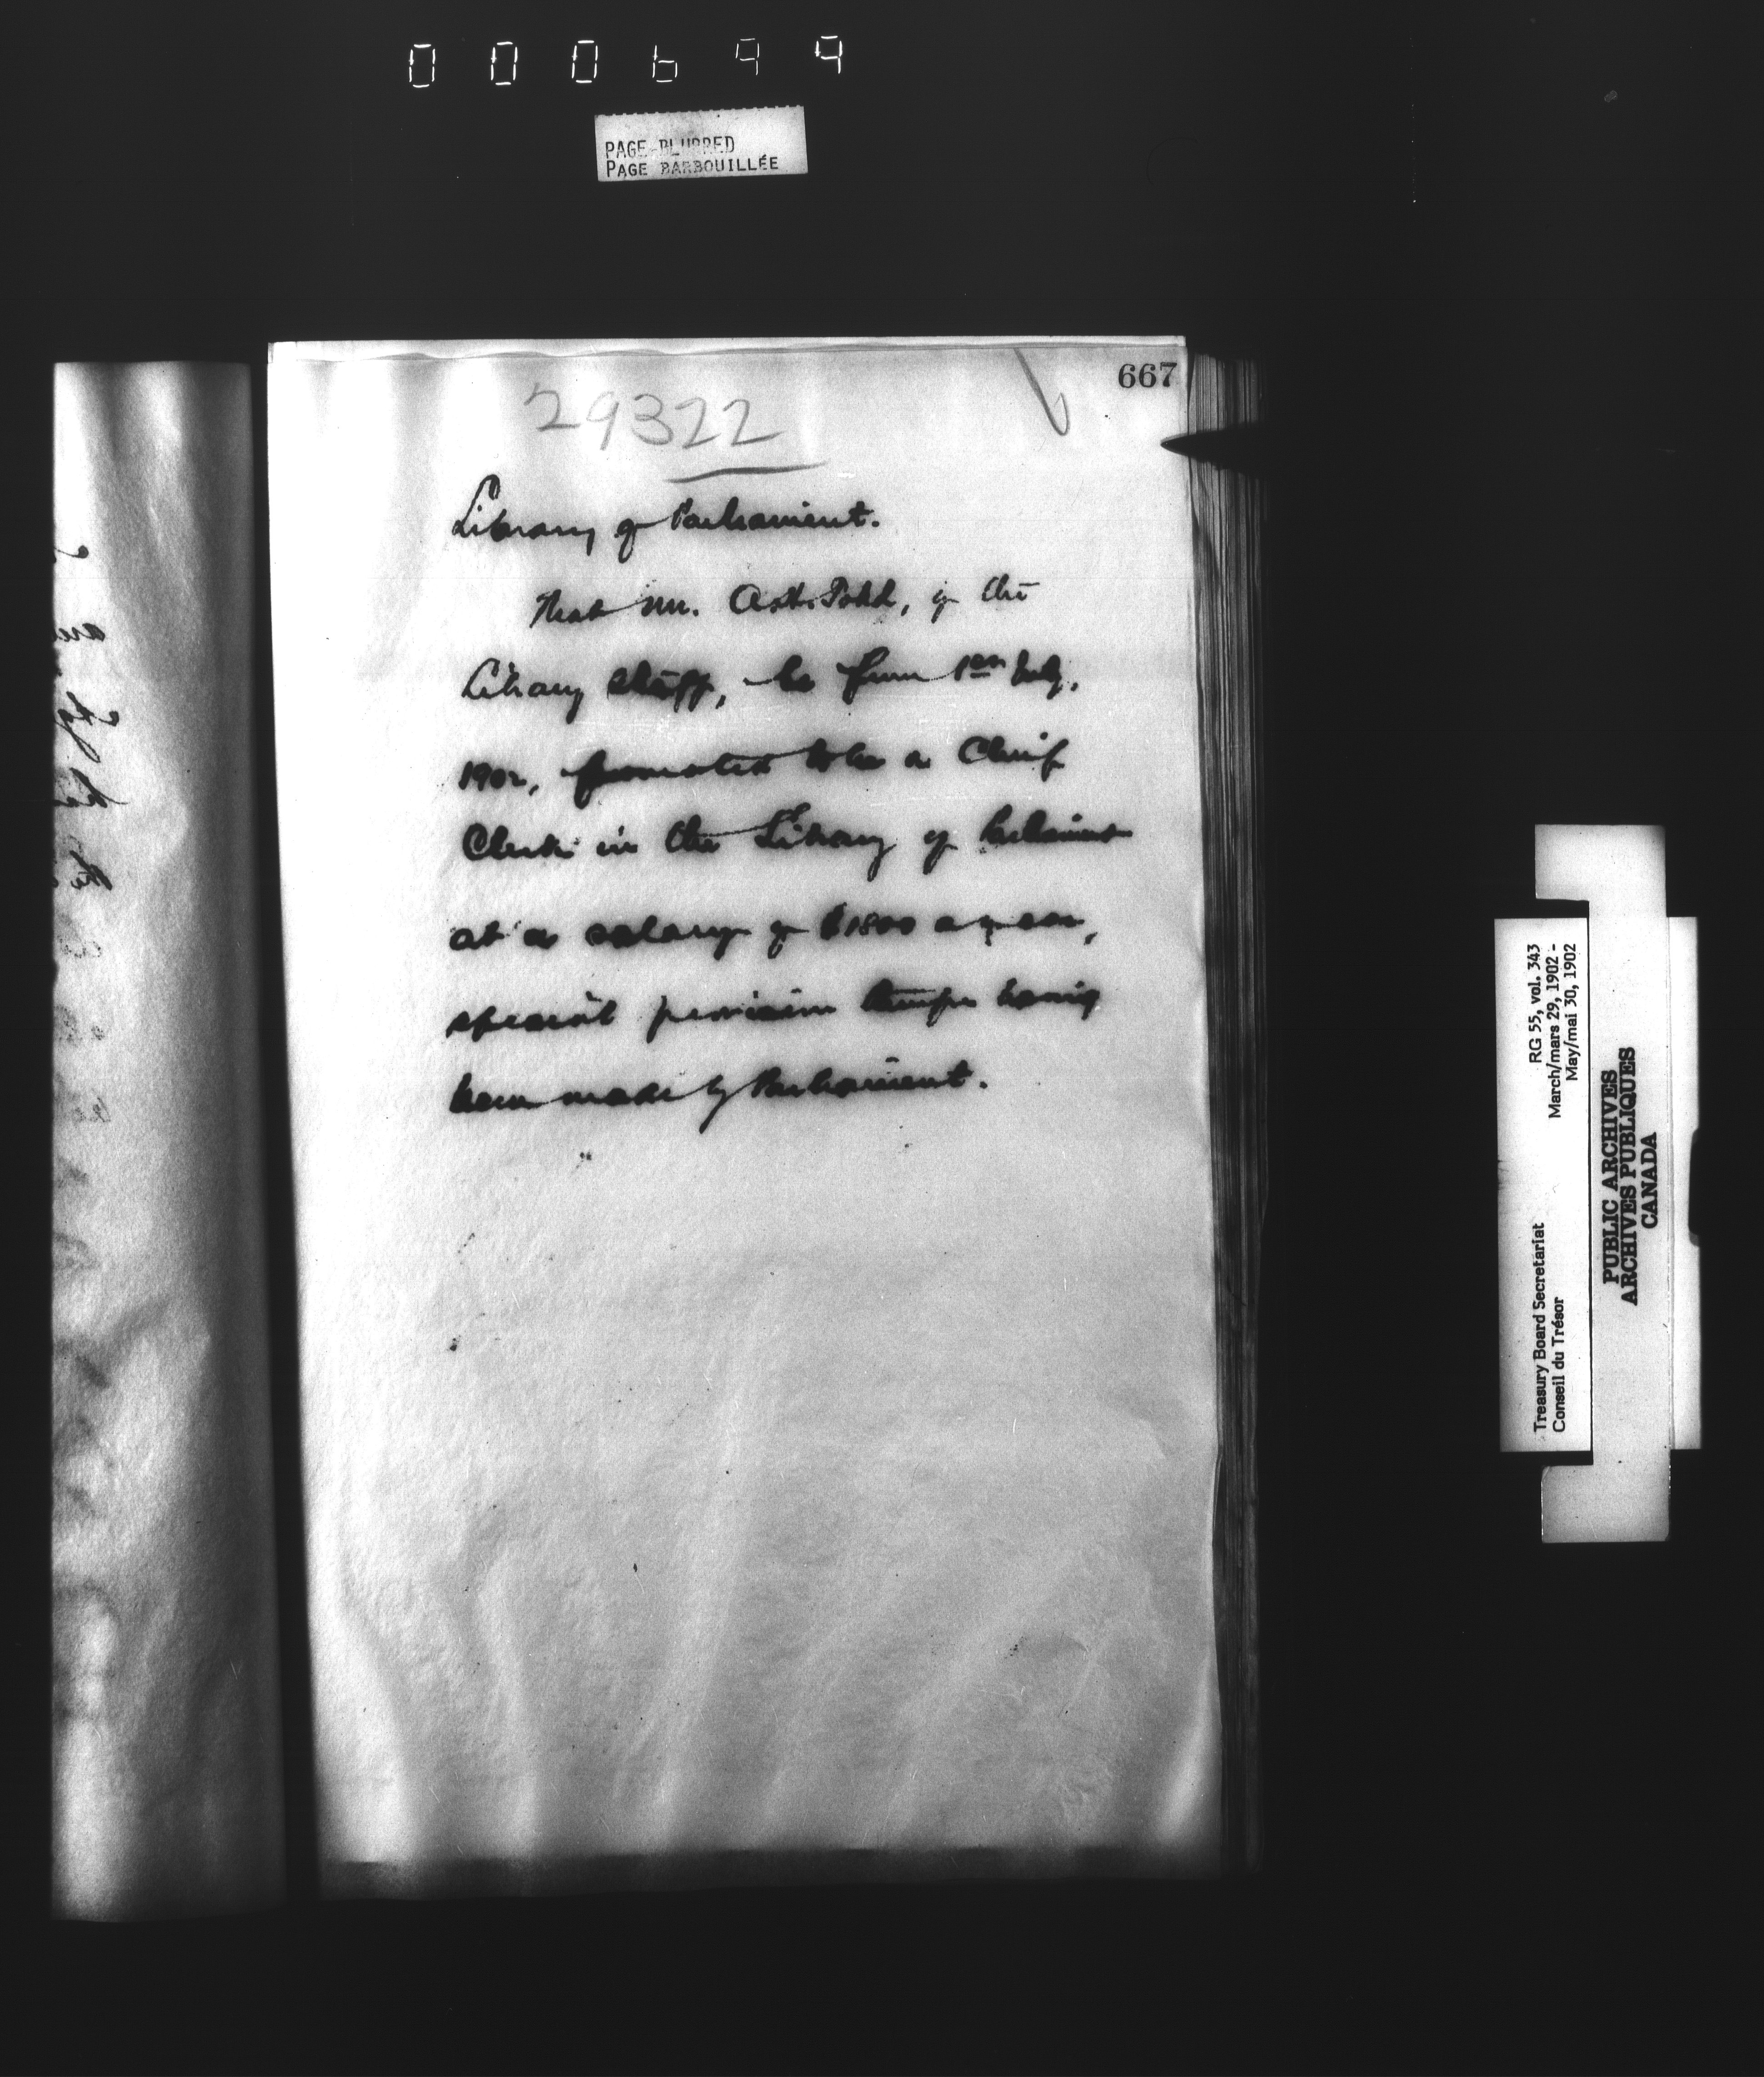 000699
PAGE BLURRED
PAGE BARBOUILLÉE
667
29322
Library of Parliament.
That Mr. A.H. Todd, of the
Library Staff, be from 1st July,
1902, promoted to be a Chief
Clerk in the Library of Parliament
at a salary of $1800 a year,
special provision therefor having
been made by Parliament.
RG 55, vol. 343
March/mars 29, 1902 -
May/mai 30, 1902
Treasury Board Secretariat
Conseil du Trésor
PUBLIC ARCHIVES
ARCHIVES PUBLIQUES
CANADA